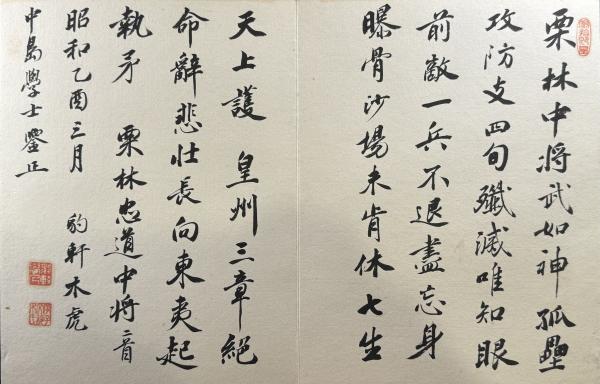 栗林中将武如神孤壘
攻防支四旬殲滅唯知眼
前敵一兵不退盡忘身
曝骨沙場未肯休七生
天上護 皇州三章絕
命辭悲壯長向東夷起
執矛 栗林忠道中将二首
昭和乙酉三月 豹軒木虎
中島學士鑒正